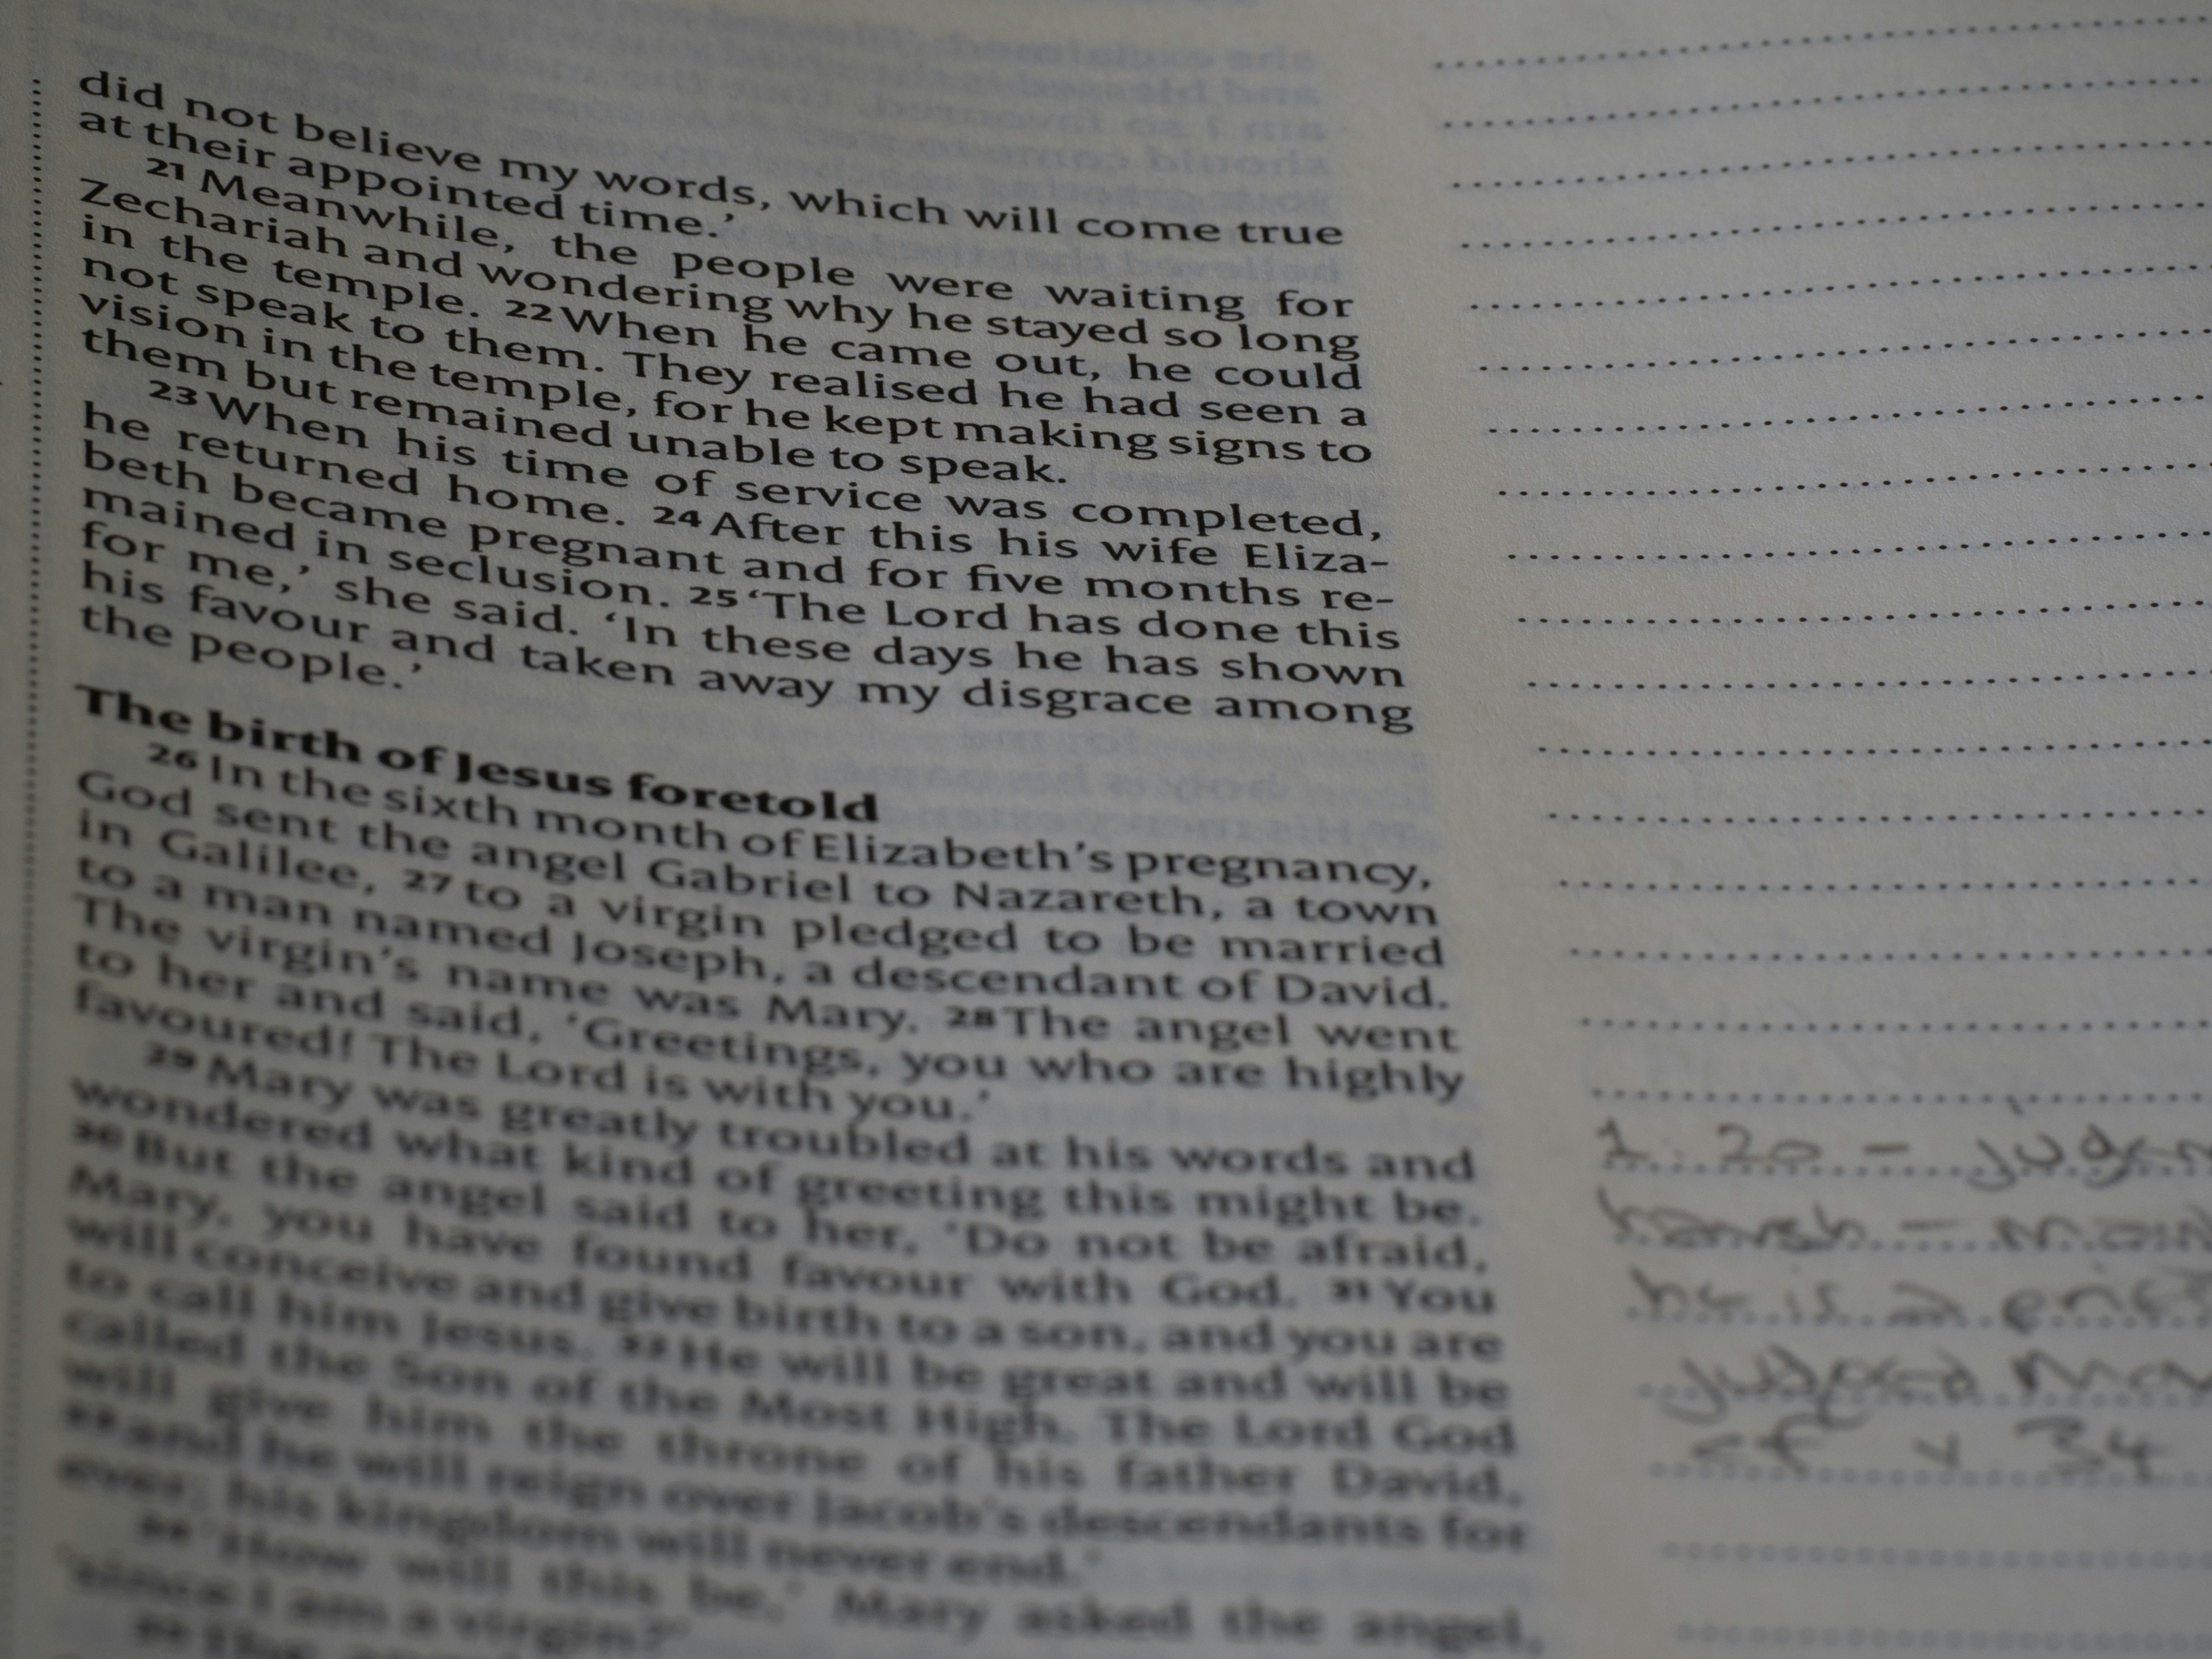 did not believe my words, which will come true
at their appointed time.’
21 Meanwhile, the people were waiting for
Zechariah and wondering why he stayed so long
in the temple. 22 When he came out, he could
not speak to them. They realised he had seen a
vision in the temple, for he kept making signs to
them but remained unable to speak.
23 When his time of service was completed,
he returned home. 24 After this his wife Eliza-
beth became pregnant and for five months re-
mained in seclusion. 25 ‘The Lord has done this
for me,’ she said. ‘In these days he has shown
his favour and taken away my disgrace among
the people.’
The birth of Jesus foretold
26 In the sixth month of Elizabeth’s pregnancy,
God sent the angel Gabriel to Nazareth, a town
in Galilee, 27 to a virgin pledged to be married
to a man named Joseph, a descendant of David.
The virgin’s name was Mary. 28 The angel went
to her and said, ‘Greetings, you who are highly
favoured! The Lord is with you.’
29 Mary was greatly troubled at his words and
wondered what kind of greeting this might be.
30 But the angel said to her, ‘Do not be afraid,
Mary, you have found favour with God. 31 You
will conceive and give birth to a son, and you are
to call him Jesus. 32 He will be great and will be
called the Son of the Most High. The Lord God
will give him the throne of his father David,
33 and he will reign over Jacob’s descendants for
ever; his kingdom will never end.’
34 ‘How will this be,’ Mary asked the angel,
‘since I am a virgin?’
1:20 -
harsh -
he is a
judged
cf v 34